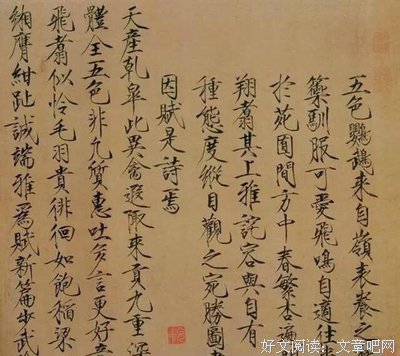 五色鸚鵡來自嶺表養之
籞馴服可愛飛鳴自適往
於苑囿間方中春繁杏遍
翔翥其上雅詫容與自有
種態度縱目觀之宛勝圖
因賦是詩焉
天產乾皋此異禽遐陬來貢九重深
體全五色非凡質惠吐多言更好
飛翥似憐毛羽貴徘徊如飽稻粱
緗膺紺趾誠端雅為賦新篇步武
好文阅读：文章吧网